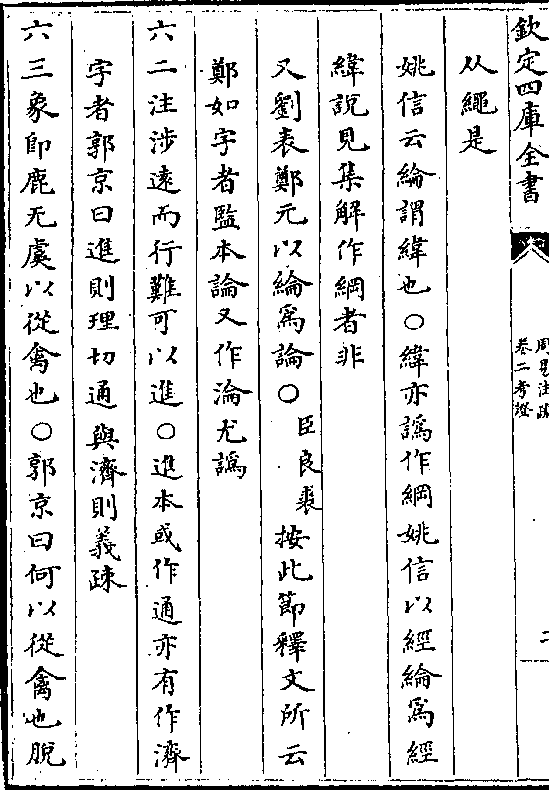 欽定四庫全書
周易注疏
卷二考證
二
从繩是
姚信云綸謂緯也○緯亦譌作綱姚信以經綸爲經
緯說見集解作綱者非
又劉表鄭元以綸爲論○臣良裘按此節釋文所云
鄭如字者監本論又作淪尤譌
六二注涉遠而行難可以進○進本或作通亦有作濟
字者郭京曰進則理切通與濟則義疎
六三象卽鹿无虞以從禽也○郭京曰何以從禽也脫